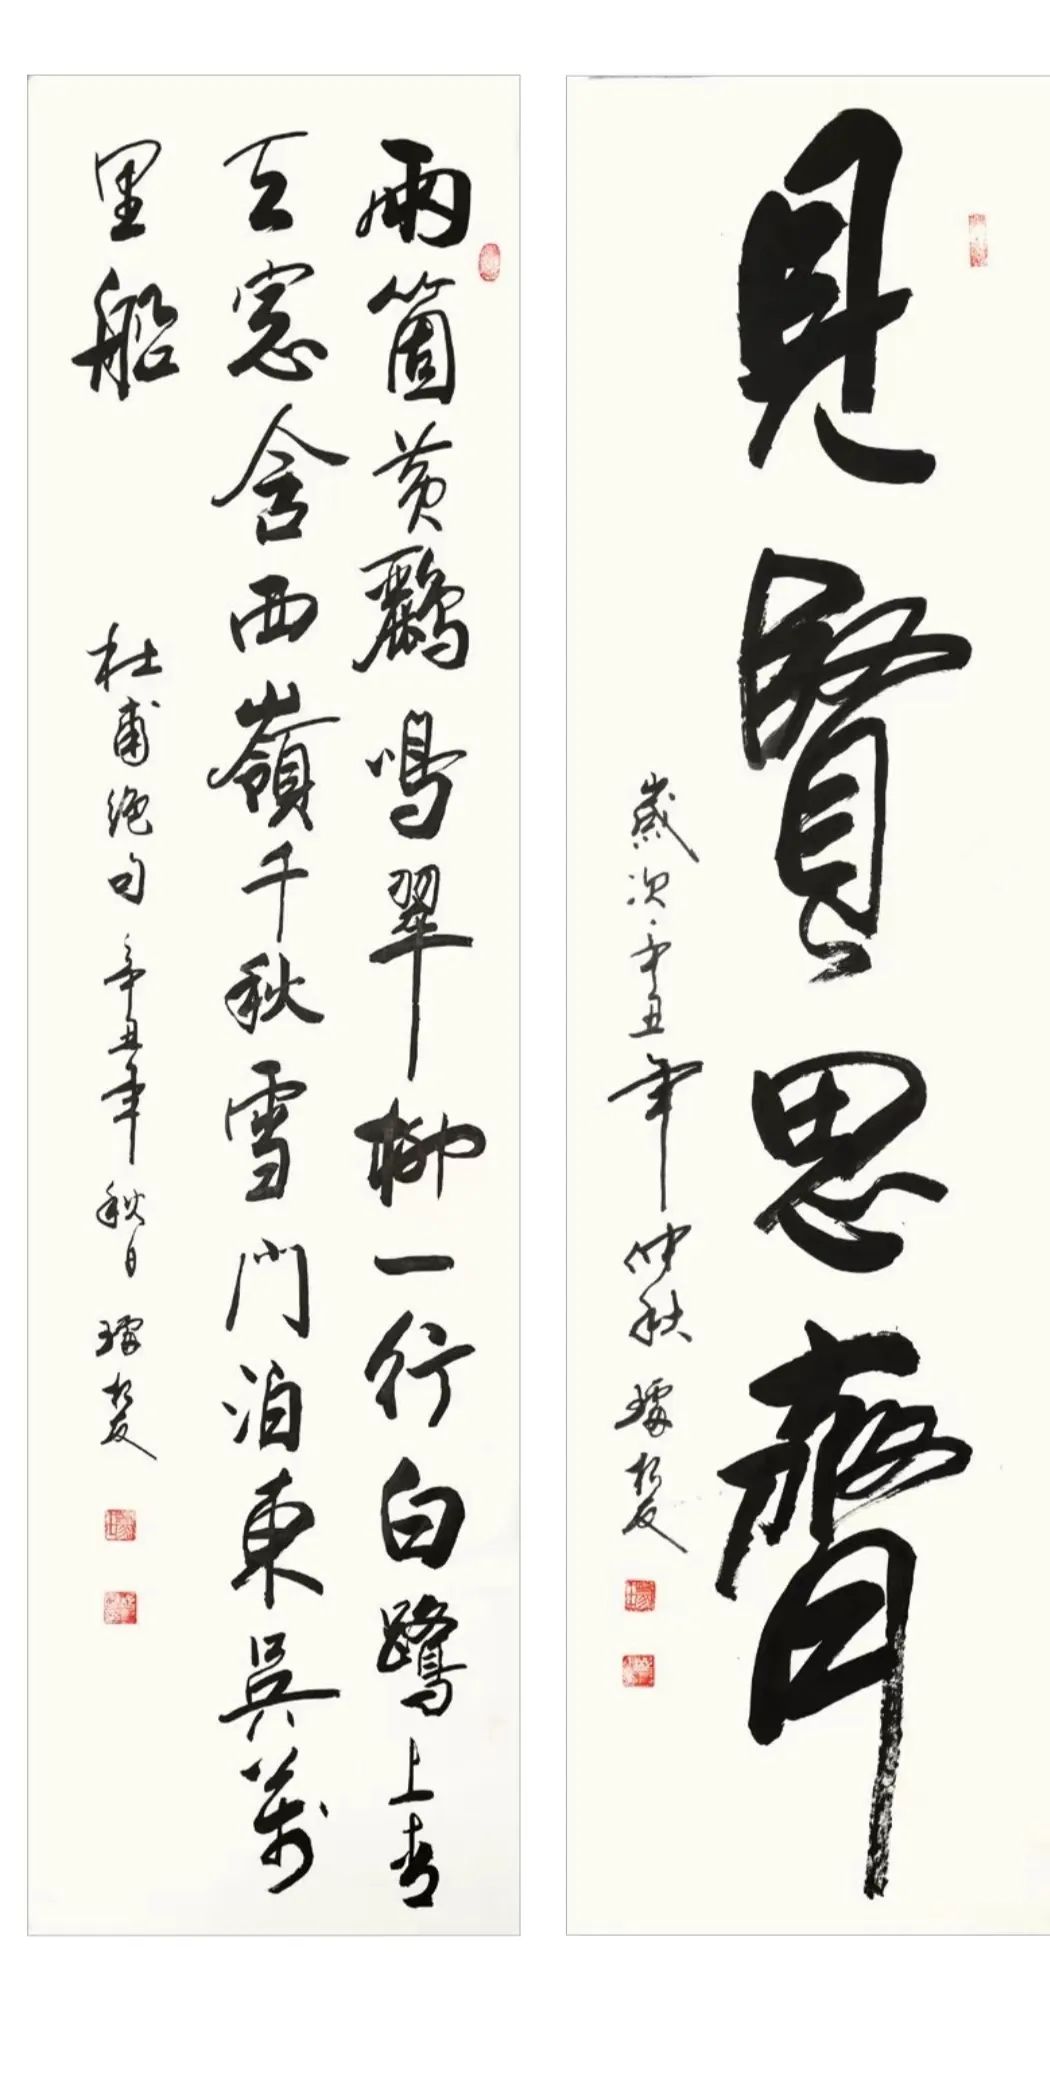 見賢思齊
歲次辛丑年仲秋
兩箇黃鸝鳴翠柳一行白鷺上青
天窓含西嶺千秋雪門泊東吳萬
里船
杜甫絶句辛丑年秋日